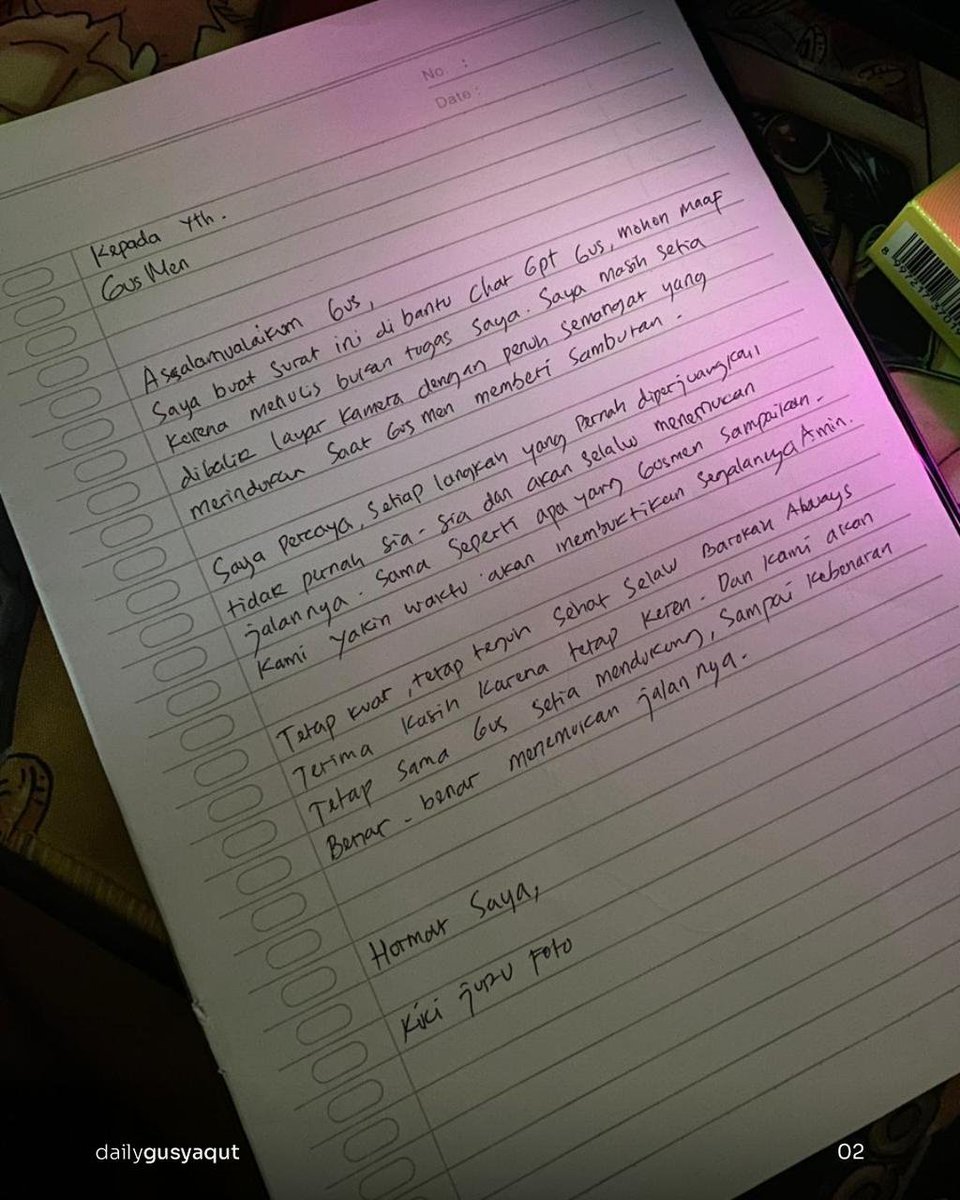 No :
Date :
Kepada Yth.
Gus Men
Assalamualaikum Gus,
Saya buat surat ini di bantu Chat Gpt Gus, mohon maaf
Karena menulis bukan tugas saya. Saya masih setia
dibalik layar kamera dengan penuh semangat yang
merindukan saat Gus men memberi sambutan.
Saya percaya, setiap langkah yang pernah diperjuangkan
tidak pernah sia-sia dan akan selalu menemukan
jalannya. Sama seperti apa yang Gusmen sampaikan.
Kami yakin waktu akan membuktikan segalanya Amin.
Tetap kuat, tetap teguh sehat selalu Barokah Always
Terima Kasih Karena tetap keren. Dan Kami akan
Tetap sama Gus setia mendukung, sampai kebenaran
Benar-benar menemukan jalan nya.
Hormat Saya,
Kiki juru Foto
dailygusyaqut
02